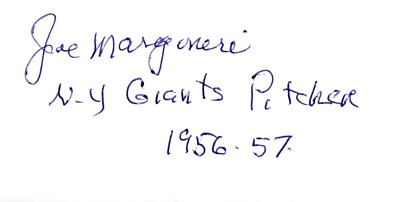 Joe Margoneri
N-Y Giants Pitcher
1956-57.